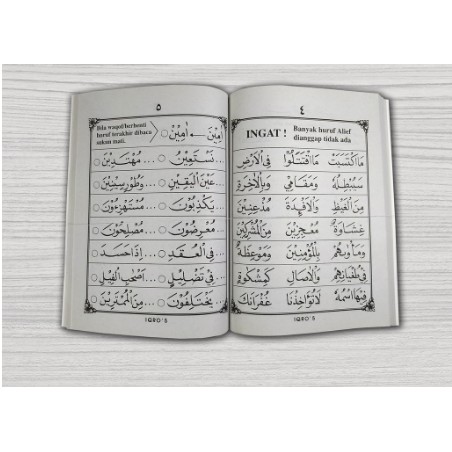 ٤
INGAT ! Banyak huruf Alief
dianggap tidak ada
مَا اكْتَسَبَتْ مَا اقْتَتَلُوْا فِي الْاَرْضِ
سَيُبْطِلُهُ وَمَقَامِيْ وَبِالْاٰخِرَةِ
مِنَ الْغَيْظِ وَالْاَفْئِدَةَ مُذْعِنِيْنَ
غِشَاوَةٌ مُعْجِزِيْنَ مِنَ الْمُشْرِكِيْنَ
وَمَأْوٰىهُمْ بِالْمُؤْمِنِيْنَ وَمَوْعِظَةً
فِيْ طُغْيَانِهِمْ وَالْاٰصَالِ كَمِشْكٰوةٍ
فِيْهَا اسْمُهُ لَا تُؤَاخِذْنَا غُفْرَانَكَ
IQRO'5
٥
Bila waqof/berhenti
huruf terakhir dibaca
sukun mati.
اٰمِيْنَ ← اٰمِيْنْ
نَسْتَعِيْنُ ... مُهْتَدِيْنَ
عَيْنَ الْيَقِيْنِ ... وَطُوْرِ سِيْنِيْنَ
يَكْذِبُوْنَ ... مُسْتَهْزِءُوْنَ
مُعْرِضُوْنَ ... مُصْلِحُوْنَ
فِي الْعُقَدِ ... اِذَا حَسَدَ
فِيْ تَضْلِيْلٍ ... اَصْحٰبِ الْفِيْلِ
يَخْتَلِفُوْنَ ... مِنَ الْمُمْتَرِيْنَ
IQRO'5